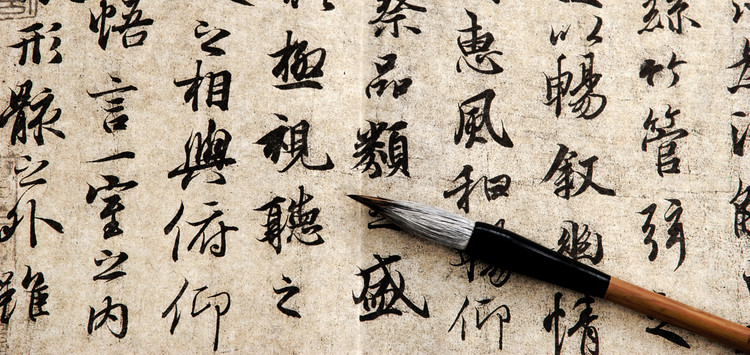 絲竹管弦之
以暢敘幽情
惠風和暢仰
察品類之盛
極視聽之
之相與俯仰
悟言一室之內
形骸之外雖